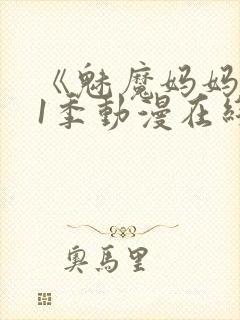 《魅魔妈妈
1季動漫在終
奧馬里